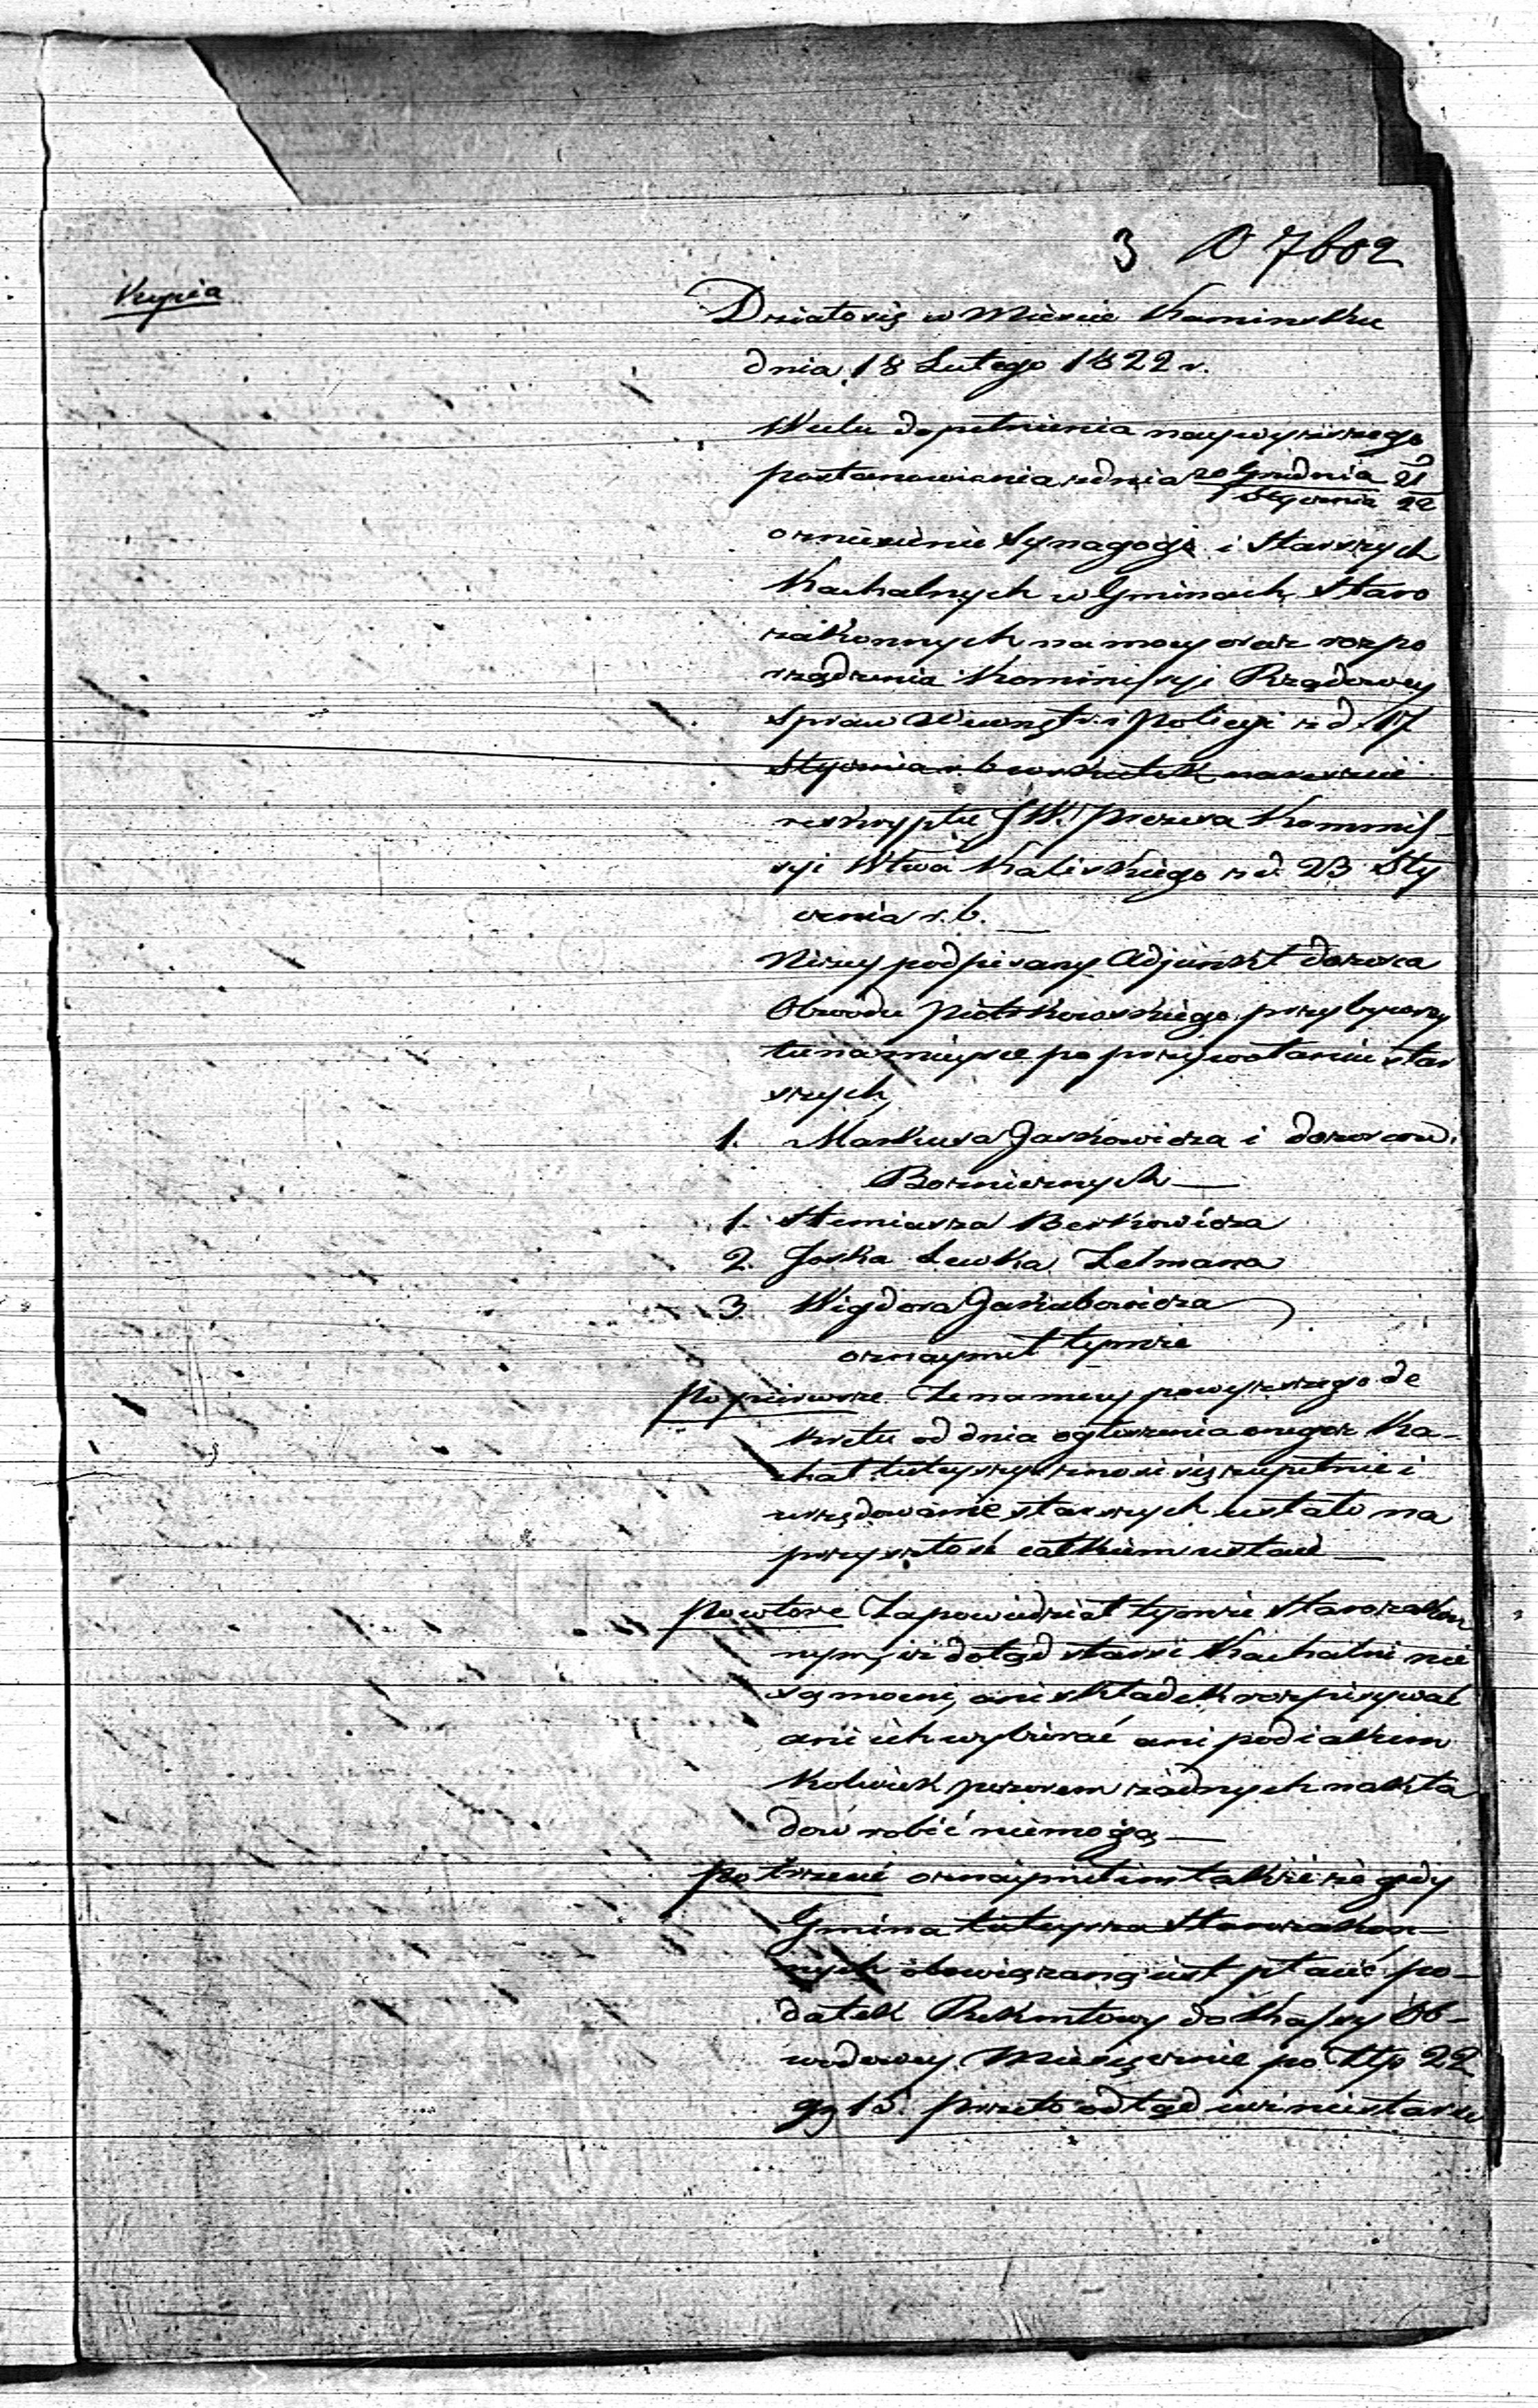 3 7602
Kopia
Działosię w Mieście Kaminsku
dnia 18 Lutego 1822 r.
W celu dopełnienia naywyższego
postanowienia zdnia 20 Grudnia 21
1 Stycznia 22
o zniesienie Synagogi i Starszych
Kachalnych w Gminach Staro
zakonnych na mocy oraz rozpo
rządzenia Kommissyi Rządowey
Spraw Wewnętr: i Policyi z d. 17
Stycznia r. b. w skutek nareszcie
reskryptu JW. Prezesa Kommis
syi Wtwa Kaliskiego z d. 23 Sty
cznia r. b.
Niżey podpisany Adjunkt dozorca
Obwodu Piotrkowskiego przybywszy
tu na mieysce po przywołaniu star
szych
1. Markusa Jaskowicza i dozorców
Bożnicznych
1. Berkowicza
2. Joska Lewka Zelmana
3. Wigdora Jakubowicza
oznaymił tymże
Po pierwsze Ze na mocy powyższego de
kretu od dnia ogłoszenia onegoż Ka-
chał tuteyszy znosi się zupełnie i
urzędowanie starszych ustało na
przyszłość całkiem ustaie
Powtóre Zapowiedział tymże Starozakon
nym, iż dotąd starsi Kachalni nie
są mocni, ani składek rozpisywać
ani ich wybierać ani pod iakim
kolwiek pozorem żadnych nakła
dów robić niemogą
po trzecie oznaymił im także że gdy
Gmina tuteysza Starozakon-
nych obowiązaną iest płacić po-
datek Rekrutowy do Kassy Ob-
wodowey Miesięcznie po Złp 22
gg 15. przeto odtąd iuż nie starsi